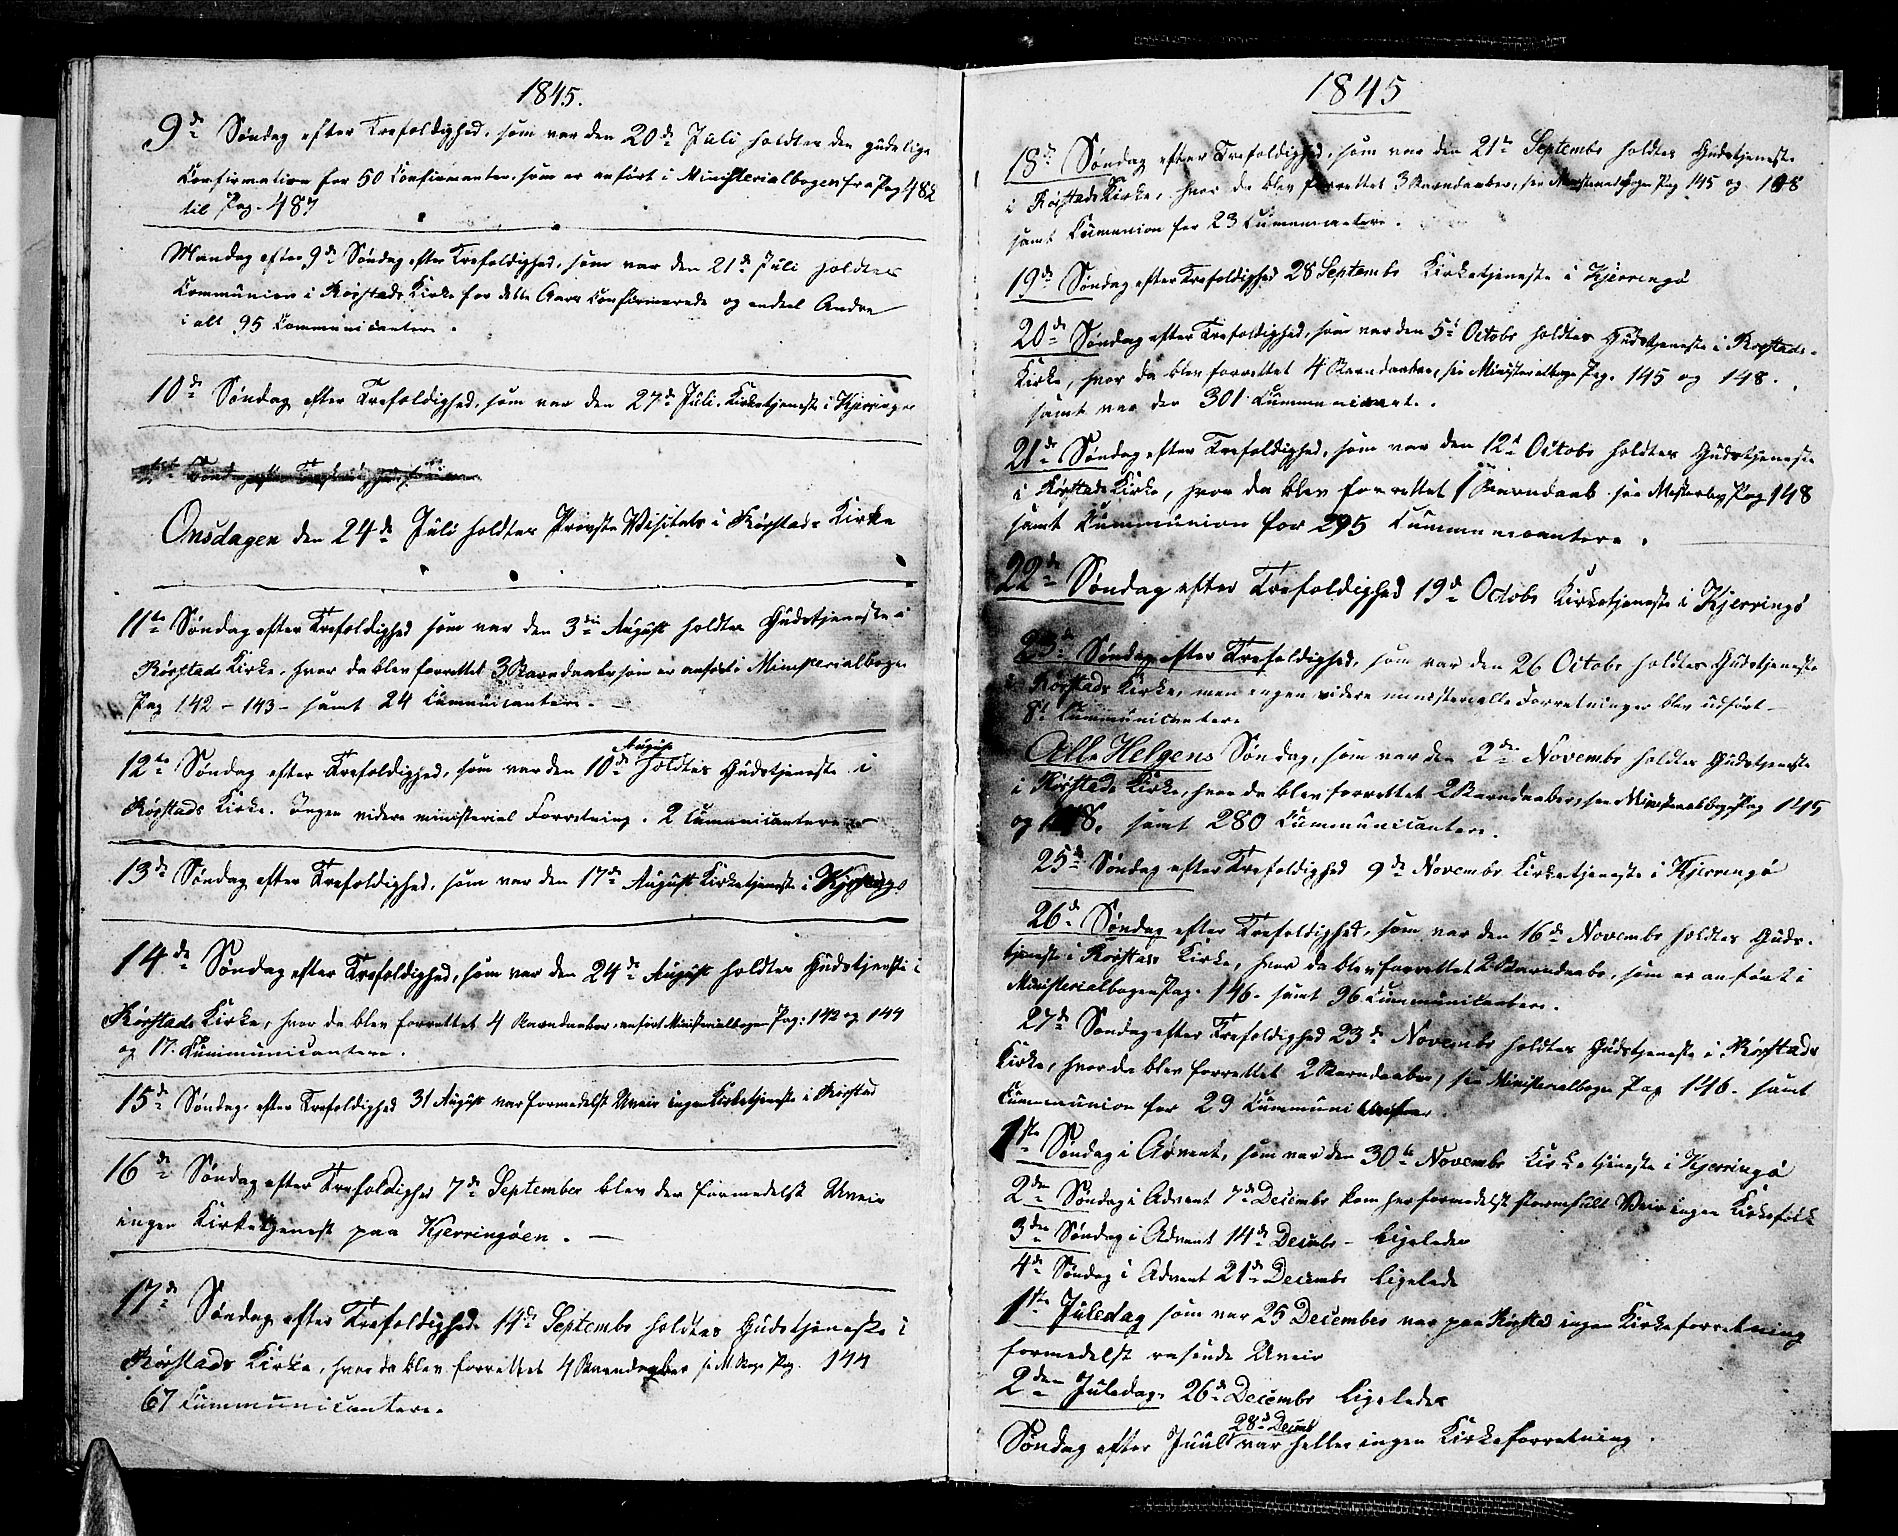 1845.
9de Søndag efter Trefoldighed, som var den 20de Juli holdtes den gudelige
Confirmation for 50 Confirmanter, som er anført i Ministerialbogen fra Pag 482
til Pag. 487
Mandag efter 9de Søndag efter Trefoldighed, som var den 21de Juli holdtes
Communion i Røstads Kirke for dette Aars Confirmerede og endeel Andre
i alt 95 Communicantere.
10de Søndag efter Trefoldighed, som var den 27de Juli. Kirketjeneste i Kjerringø
Onsdagen den 24de Juli holdtes Provste Visitats i Rørstads Kirke
11te Søndag efter Trefoldighed som var den 3die August holdtes Gudstjeneste i
Rørstads Kirke, hvor da blev forrettet 3 Barndaabe som er anført i Ministerialbogen
Pag 142 - 143 - samt 24 Cumunicantere. -
12te Søndag efter Trefoldighed, som var den 10de August holdtes Gudstjeneste i
Rørstads Kirke. Ingen videre ministerial Forretning. 2 Cumunicantere
13de Søndag efter Trefoldighed, som var den 17de August Kirketjeneste i Kjerringø
14de Søndag efter Trefoldighed, som var den 24de August holdtes Gudstjeneste i
Rørstads Kirke, hvor da blev forrettet 4 Barndaaber, anført Ministerialbogen Pag: 142 og 144
og 17. Cummunicantere.
15de Søndag efter Trefoldighed 31 August var formedelst Uveir ingen Kirketjeneste i Rørstad
16de Søndag efter Trefoldighed 7de September blev der formedelst Uveir
ingen Kirketjenest paa Kjerringøen. -
17de Søndag efter Trefoldighed 14de Septembr holdtes Gudstjeneste i
Rørstads Kirke, hvor da blev forrettet 4 Barndaaber se M. Bog Pag. 144
67 Cummunicantere.
1845
18de Søndag efter Trefoldighed, som var den 21de Septembr holdtes Gudstjeneste
i Rørstads Kirke, hvor da blev forrettet 3 Barndaaber, see Ministerialbogen Pag 145 og 148
samt Cumunion for 23 Cumunicantere.
19de Søndag efter Trefoldighed 28 Septembr Kirketjeneste i Kjerringø
20de Søndag efter Trefoldighed, som var den 5te Octobr holdtes Gudstjeneste i Rørstads
Kirke, hvor da blev forrettet 4 Barndaaber, see Ministerialbogen Pag. 145 og 148.
samt var der 301 Cummunicant.
21de Søndag efter Trefoldighed, som var den 12te Octobr holdtes Gudstjeneste
i Rørstads Kirke, hvor da blev forrettet 1 Barndaab see Pag 148
samt Cummunion for 295 Cummunicantere.
22de Søndag efter Trefoldighed 19de Octobr Kirketjeneste i Kjerringø
23de Søndag efter Trefoldighed, som var den 26 Octobr holdtes Gudstjeneste
i Rørstads Kirke, men ingen videre ministerielle Forretninger blev udført -
8te Cummunicantere
Alle Helgens Søndag, som var den 2den Novembr holdtes Gudstjeneste
i Rørstads Kirke, hvor da blev forrettet 2 Barndaaber, see Ministerialbog Pag 145
og 148. samt 280 Cummunicantere.
25de Søndag efter Trefoldighed 9de Novembr Kirketjeneste i Kjerringø
26de Søndag efter Trefoldighed, som var den 16de Novembr holdtes Guds-
tjeneste i Rørstads Kirke, hvor da blev forrettet 2 Barndaabe, som er anført i
Ministerialbogen Pag. 146. samt 96 Cummunicantere.
27de Søndag efter Trefoldighed 23de Novembr holdtes Gudstjeneste i Rørstads
Kirke, hvor da blev forrettet 2 Barndaaber, see Ministerialbogen Pag 146. samt
Cummunion for 29 Cummunicantere.
1ste Søndag i Advent, som var den 30te Novembr Kirketjeneste i Kjerringø
2den Søndag i Advent 7de Decembr kom her formedelst Veir ingen Kirkefolk
3die Søndag i Advent 14de Decembr - Ligeledes
4de Søndag i Advent 21de Decembr Ligelede
1ste Juledag som var 25 December var paa Rørstad ingen Kirkeforretning
formedelst rasende Uveir
2den Juledag 26de Decembr Ligeledes
Søndag efter Juul 28de Decemb var heller ingen Kirkeforretning.